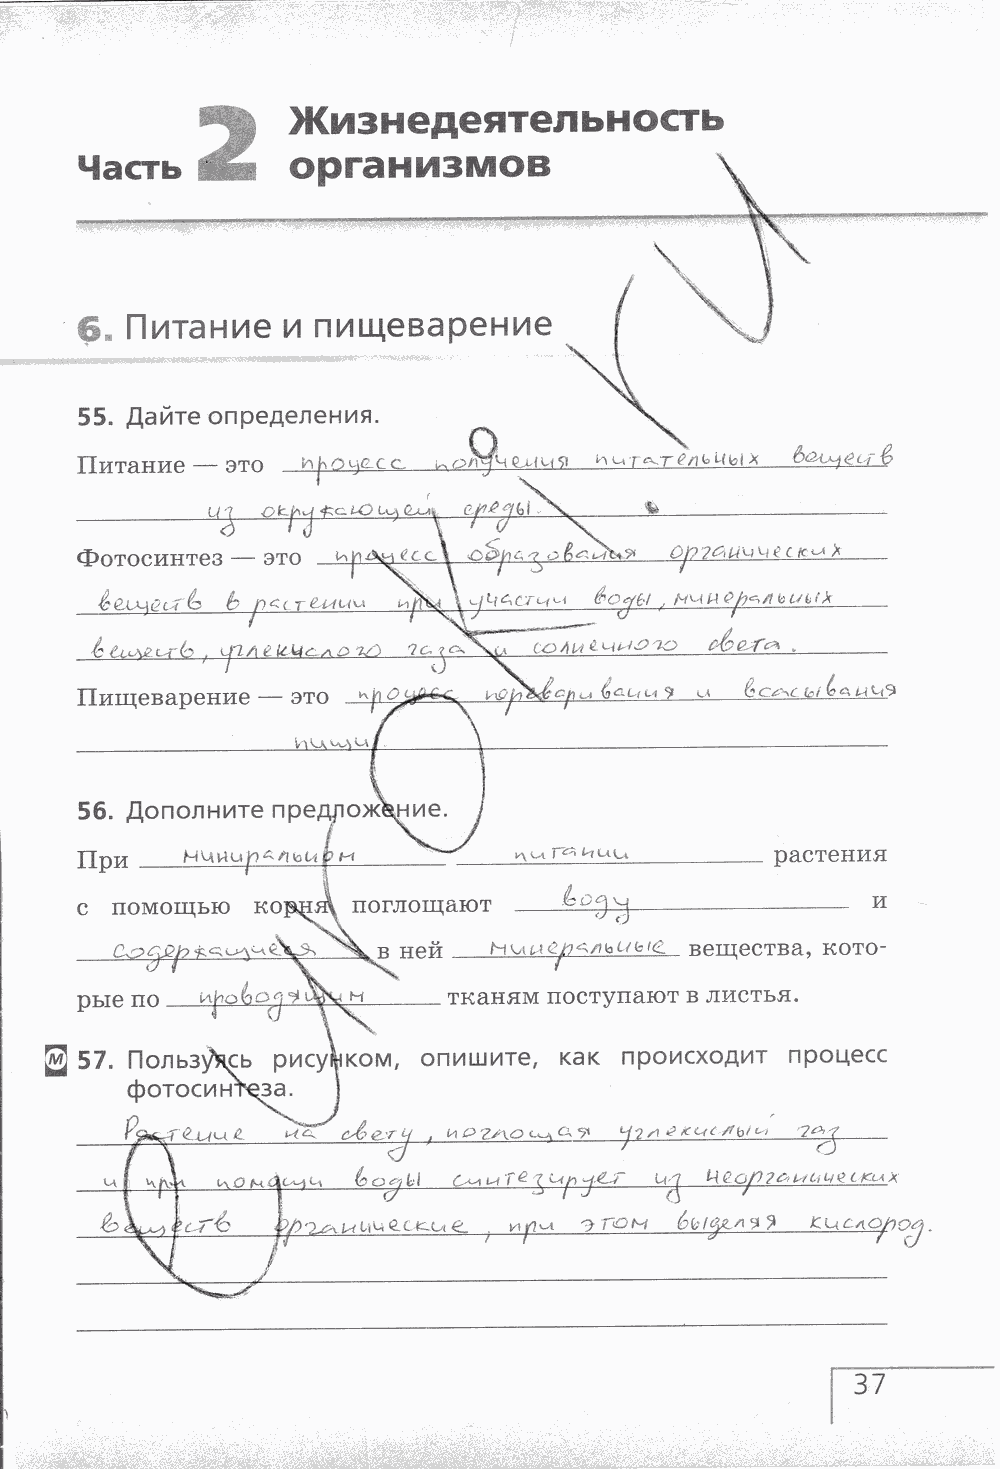 Часть 2 Жизнедеятельность
организмов
6. Питание и пищеварение
55. Дайте определения.
Питание — это процесс получения питательных веществ
из окружающей среды.
Фотосинтез — это процесс образования органических
веществ в растении при участии воды, минеральных
веществ, углекислого газа и солнечного света.
Пищеварение — это процесс переваривания и всасывания
пищи.
56. Дополните предложение.
При миниральном питании растения
с помощью корня поглощают воду и
содержащиеся в ней минеральные вещества, кото-
рые по проводящим тканям поступают в листья.
М 57. Пользуясь рисунком, опишите, как происходит процесс
фотосинтеза.
Растение на свету, поглощая углекислый газ
и при помощи воды синтезирует из неорганических
веществ органические, при этом выделяя кислород.
37